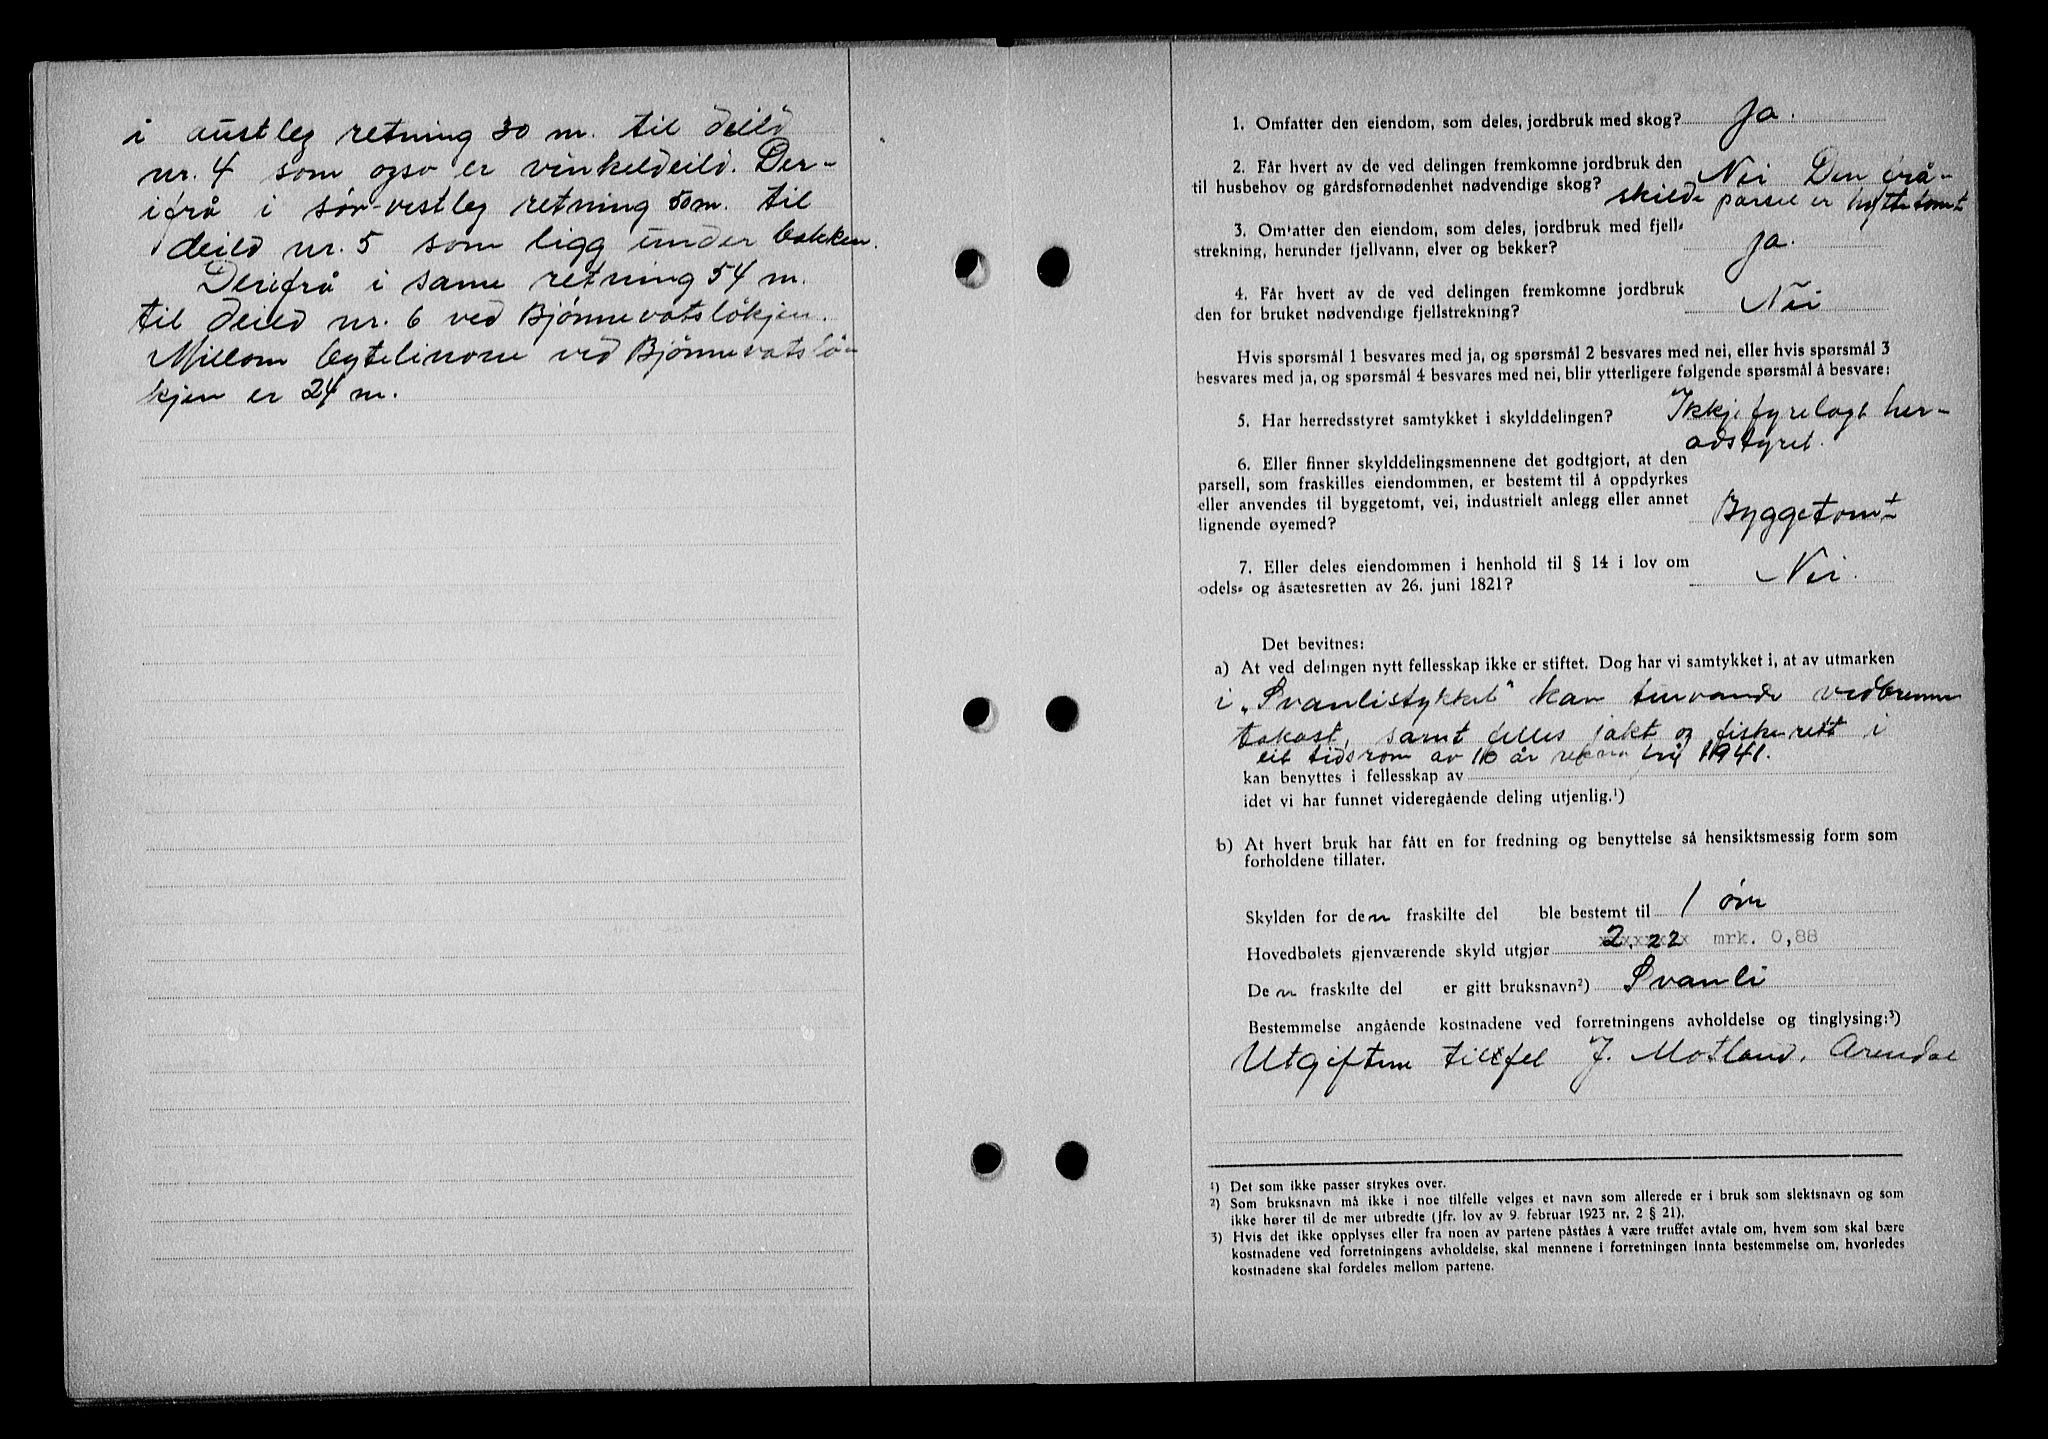 i austleg retning 30 m. til deild
nr. 4 som også er vinkeldeild. Der-
ifrå i sør-vestleg retning 50 m. til
deild nr. 5 som ligg under bakken.
Derifrå i same retning 54 m.
til deild nr. 6 ved Bjønnevatsløkjen.
Millom bytelinone ved Bjønnevatslø-
kjen er 24 m.
1. Omfatter den eiendom, som deles, jordbruk med skog? Ja.
2. Får hvert av de ved delingen fremkomne jordbruk den
til husbehov og gårdsfornødenhet nødvendige skog? Nei Den frå-
skilde parsel er hyttetomt
3. Omfatter den eiendom, som deles, jordbruk med fjell-
strekning, herunder fjellvann, elver og bekker? Ja.
4. Får hvert av de ved delingen fremkomne jordbruk
den for bruket nødvendige fjellstrekning? Nei
Hvis spørsmål 1 besvares med ja, og spørsmål 2 besvares med nei, eller hvis spørsmål 3
besvares med ja, og spørsmål 4 besvares med nei, blir ytterligere følgende spørsmål å besvare:
5. Har herredsstyret samtykket i skylddelingen? Ikkje fyrelagt her-
adstyret.
6. Eller finner skylddelingsmennene det godtgjort, at den
parsell, som fraskilles eiendommen, er bestemt til å oppdyrkes
eller anvendes til byggetomt, vei, industrielt anlegg eller annet
lignende øyemed? Byggetomt
7. Eller deles eiendommen i henhold til § 14 i lov om
odels- og åsætesretten av 26. juni 1821? Nei.
Det bevitnes:
a) At ved delingen nytt fellesskap ikke er stiftet. Dog har vi samtykket i, at av utmarken
i „Svanlistykket" kan turvande vedbrenne
takast, samt felles jakt og fiskerett i
eit tidsrom av 10 år rekna frå 1941.
kan benyttes i fellesskap av
idet vi har funnet videregående deling utjenlig.¹)
b) At hvert bruk har fått en for fredning og benyttelse så hensiktsmessig form som
forholdene tillater.
Skylden for den fraskilte del ble bestemt til 1 øre
Hovedbølets gjenværende skyld utgjør 2.22 mrk. 0,88
Den fraskilte del er gitt bruksnavn²) Svanli
Bestemmelse angående kostnadene ved forretningens avholdelse og tinglysing:³)
Utgiftene tilfel J. Motland, Arendal
¹) Det som ikke passer strykes over.
²) Som bruksnavn må ikke i noe tilfelle velges et navn som allerede er i bruk som slektsnavn og som
ikke hører til de mer utbredte (jfr. lov av 9. februar 1923 nr. 2 § 21).
³) Hvis det ikke opplyses eller fra noen av partene påståes å være truffet avtale om, hvem som skal bære
kostnadene ved forretningens avholdelse, skal mennene i forretningen innta bestemmelse om, hvorledes
kostnadene skal fordeles mellom partene.